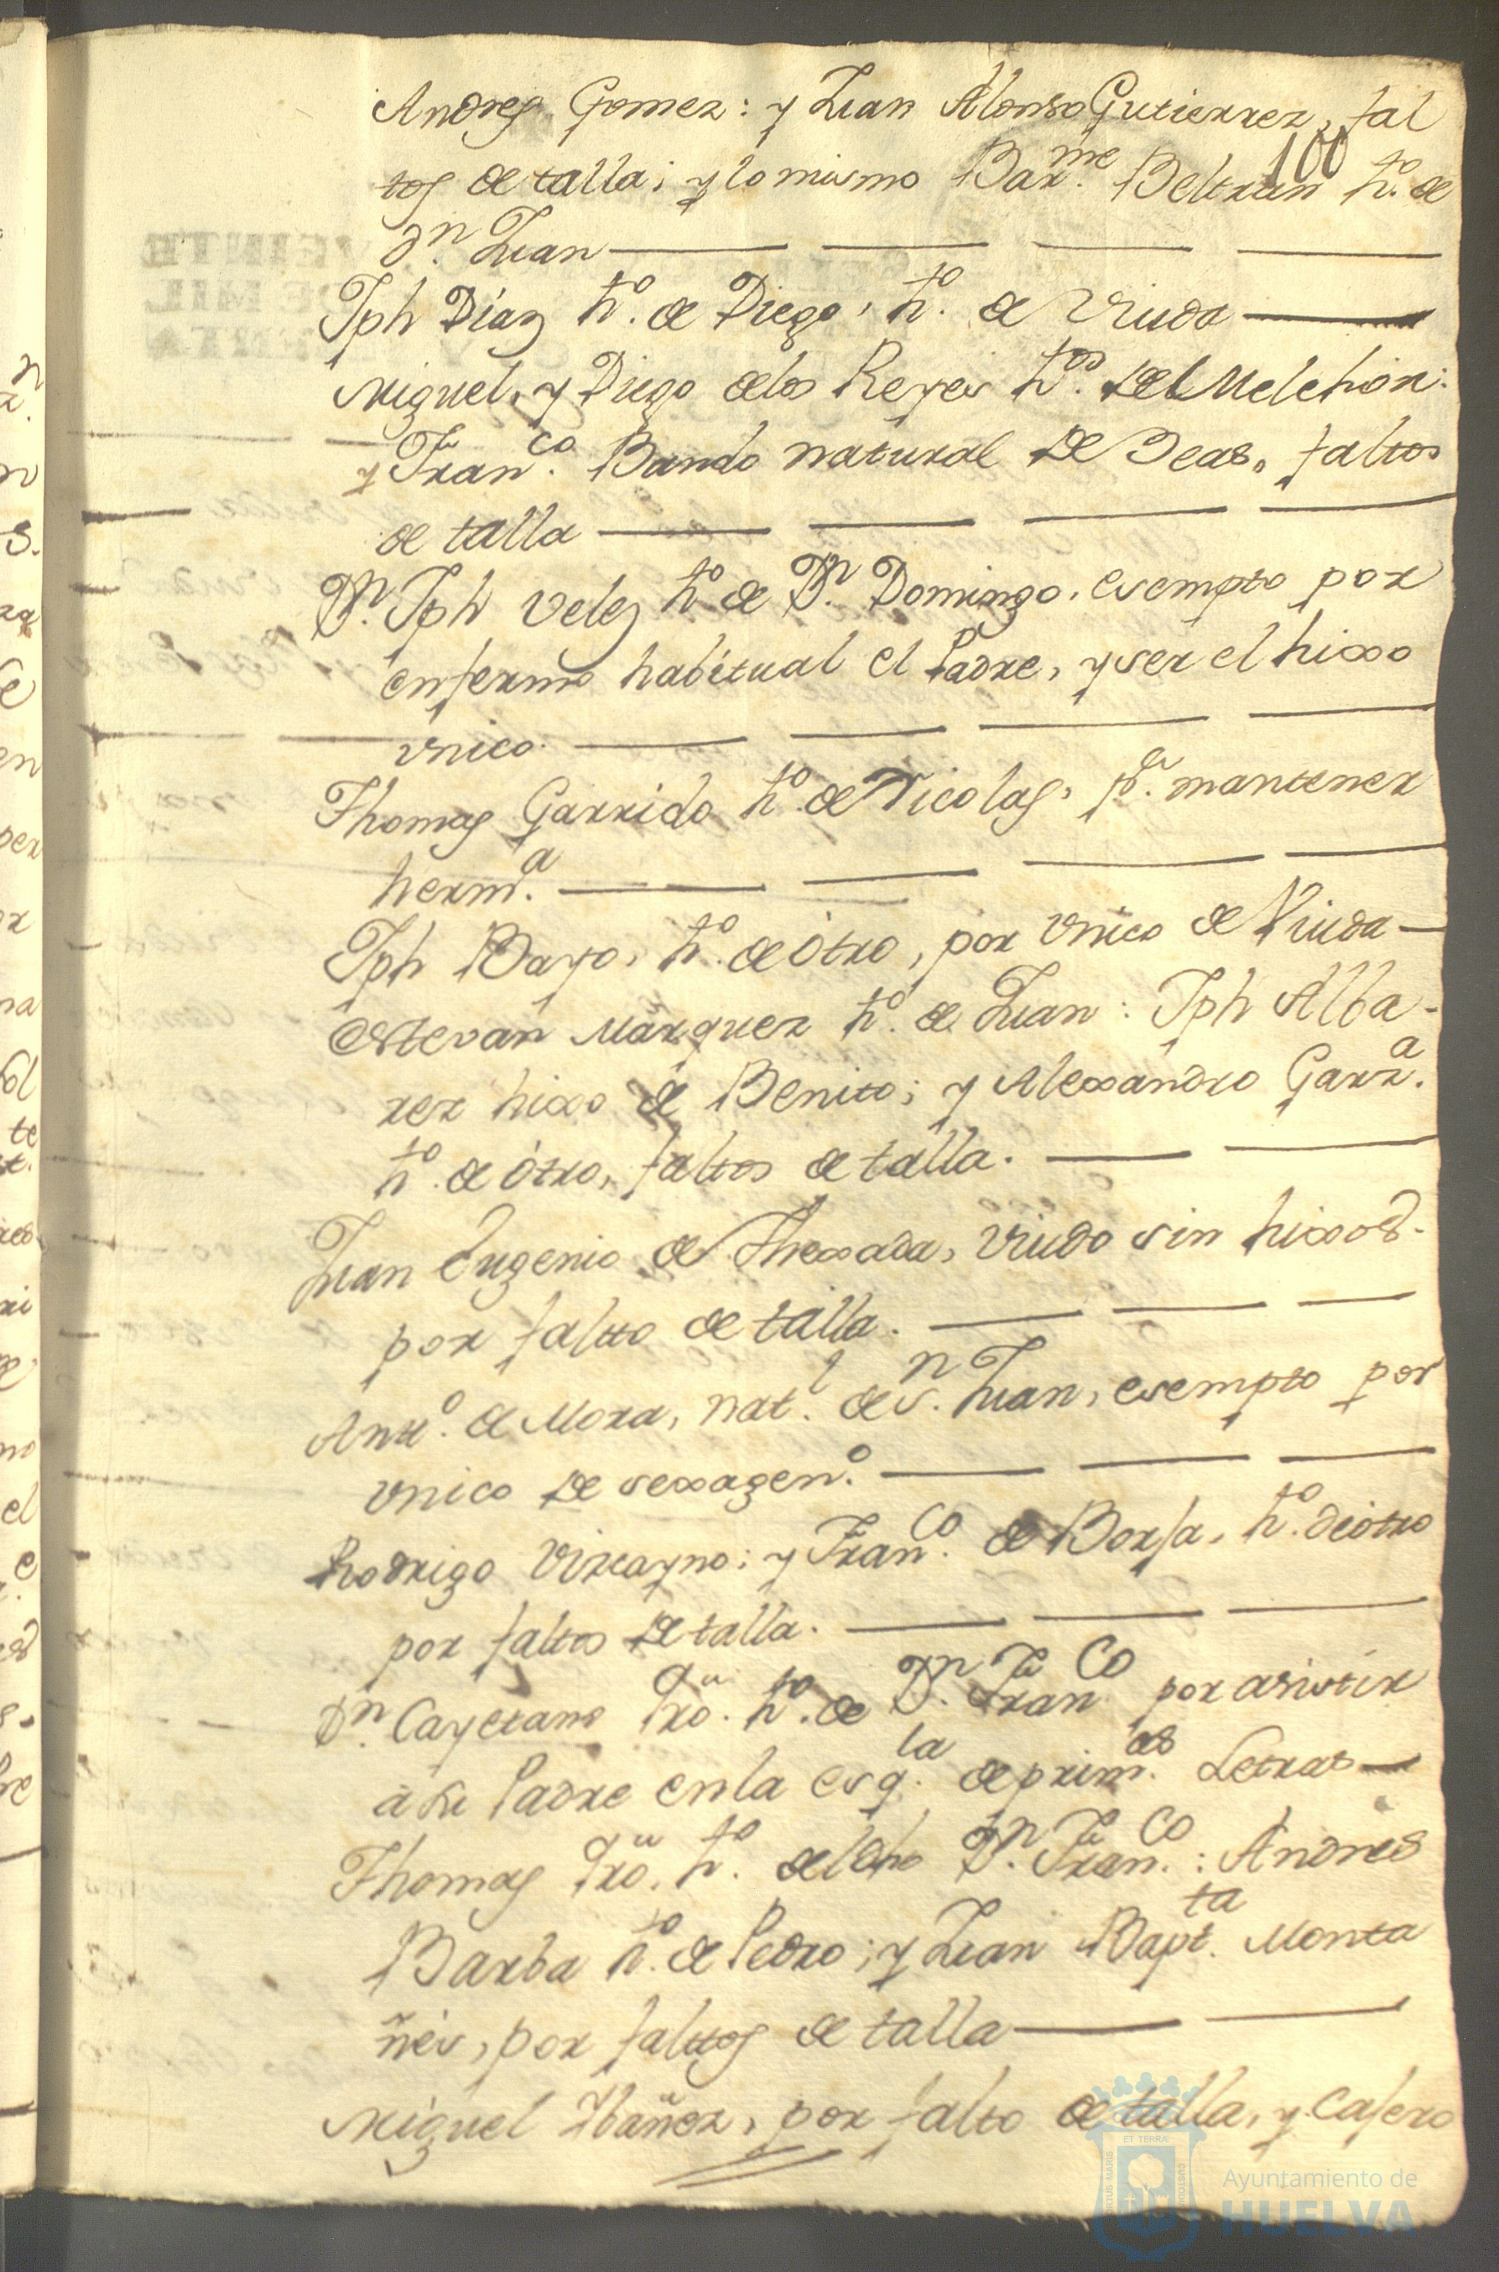 100
Andres Gomez: y Juan Alonso Gutierrez, fal
tos de talla; y lo mismo Barme. Beltran ho. de
dn. Juan
Jph Díaz ho. de Diego, ho. de Viuda
Miguel, y Diego delos Reyes hos. del Melchor:
y Franco. Bando natural de Beas, faltos
de talla
Dn. Jph Velez ho. de Dn. Domingo, esempto por
enfermo habitual el Padre, y ser el hixo
vnico.
Thomas Garrido ho. de Nicolas, pr. mantener
herma.
Jph Bayo, ho. de ótro, por vnico de Viuda
Estevan Márquez ho. de Juan: Jph Alba-
rez hixo de Benito; y Alexandro Garza.
ho. de ótro, faltos de talla.
Juan Eugenio de Thexada, Viudo sin hixos.
por faltto de talla.
Anto. de Mora, natl. de Sn. Juan, esempto por
vnico de sexageno.
Rodrigo Vizcayno: y Franco. de Borja, ho. de otro
por faltos de talla.
Dn. Cayetano ho. de Dn. Franco. por asistir
à su Padre en la esqla. de primas. Letras
Thomas ho. del dho Dn. Franco.: Andres
Barba ho. de Pedro; y Juan Bapta. Monta
ñés, por falttos de talla
Miguel Ibañez, por falto de talla, y Casero
ET TERRÆ
PORTUS MARIS
CUSTODIA
Ayuntamiento de
HUELVA